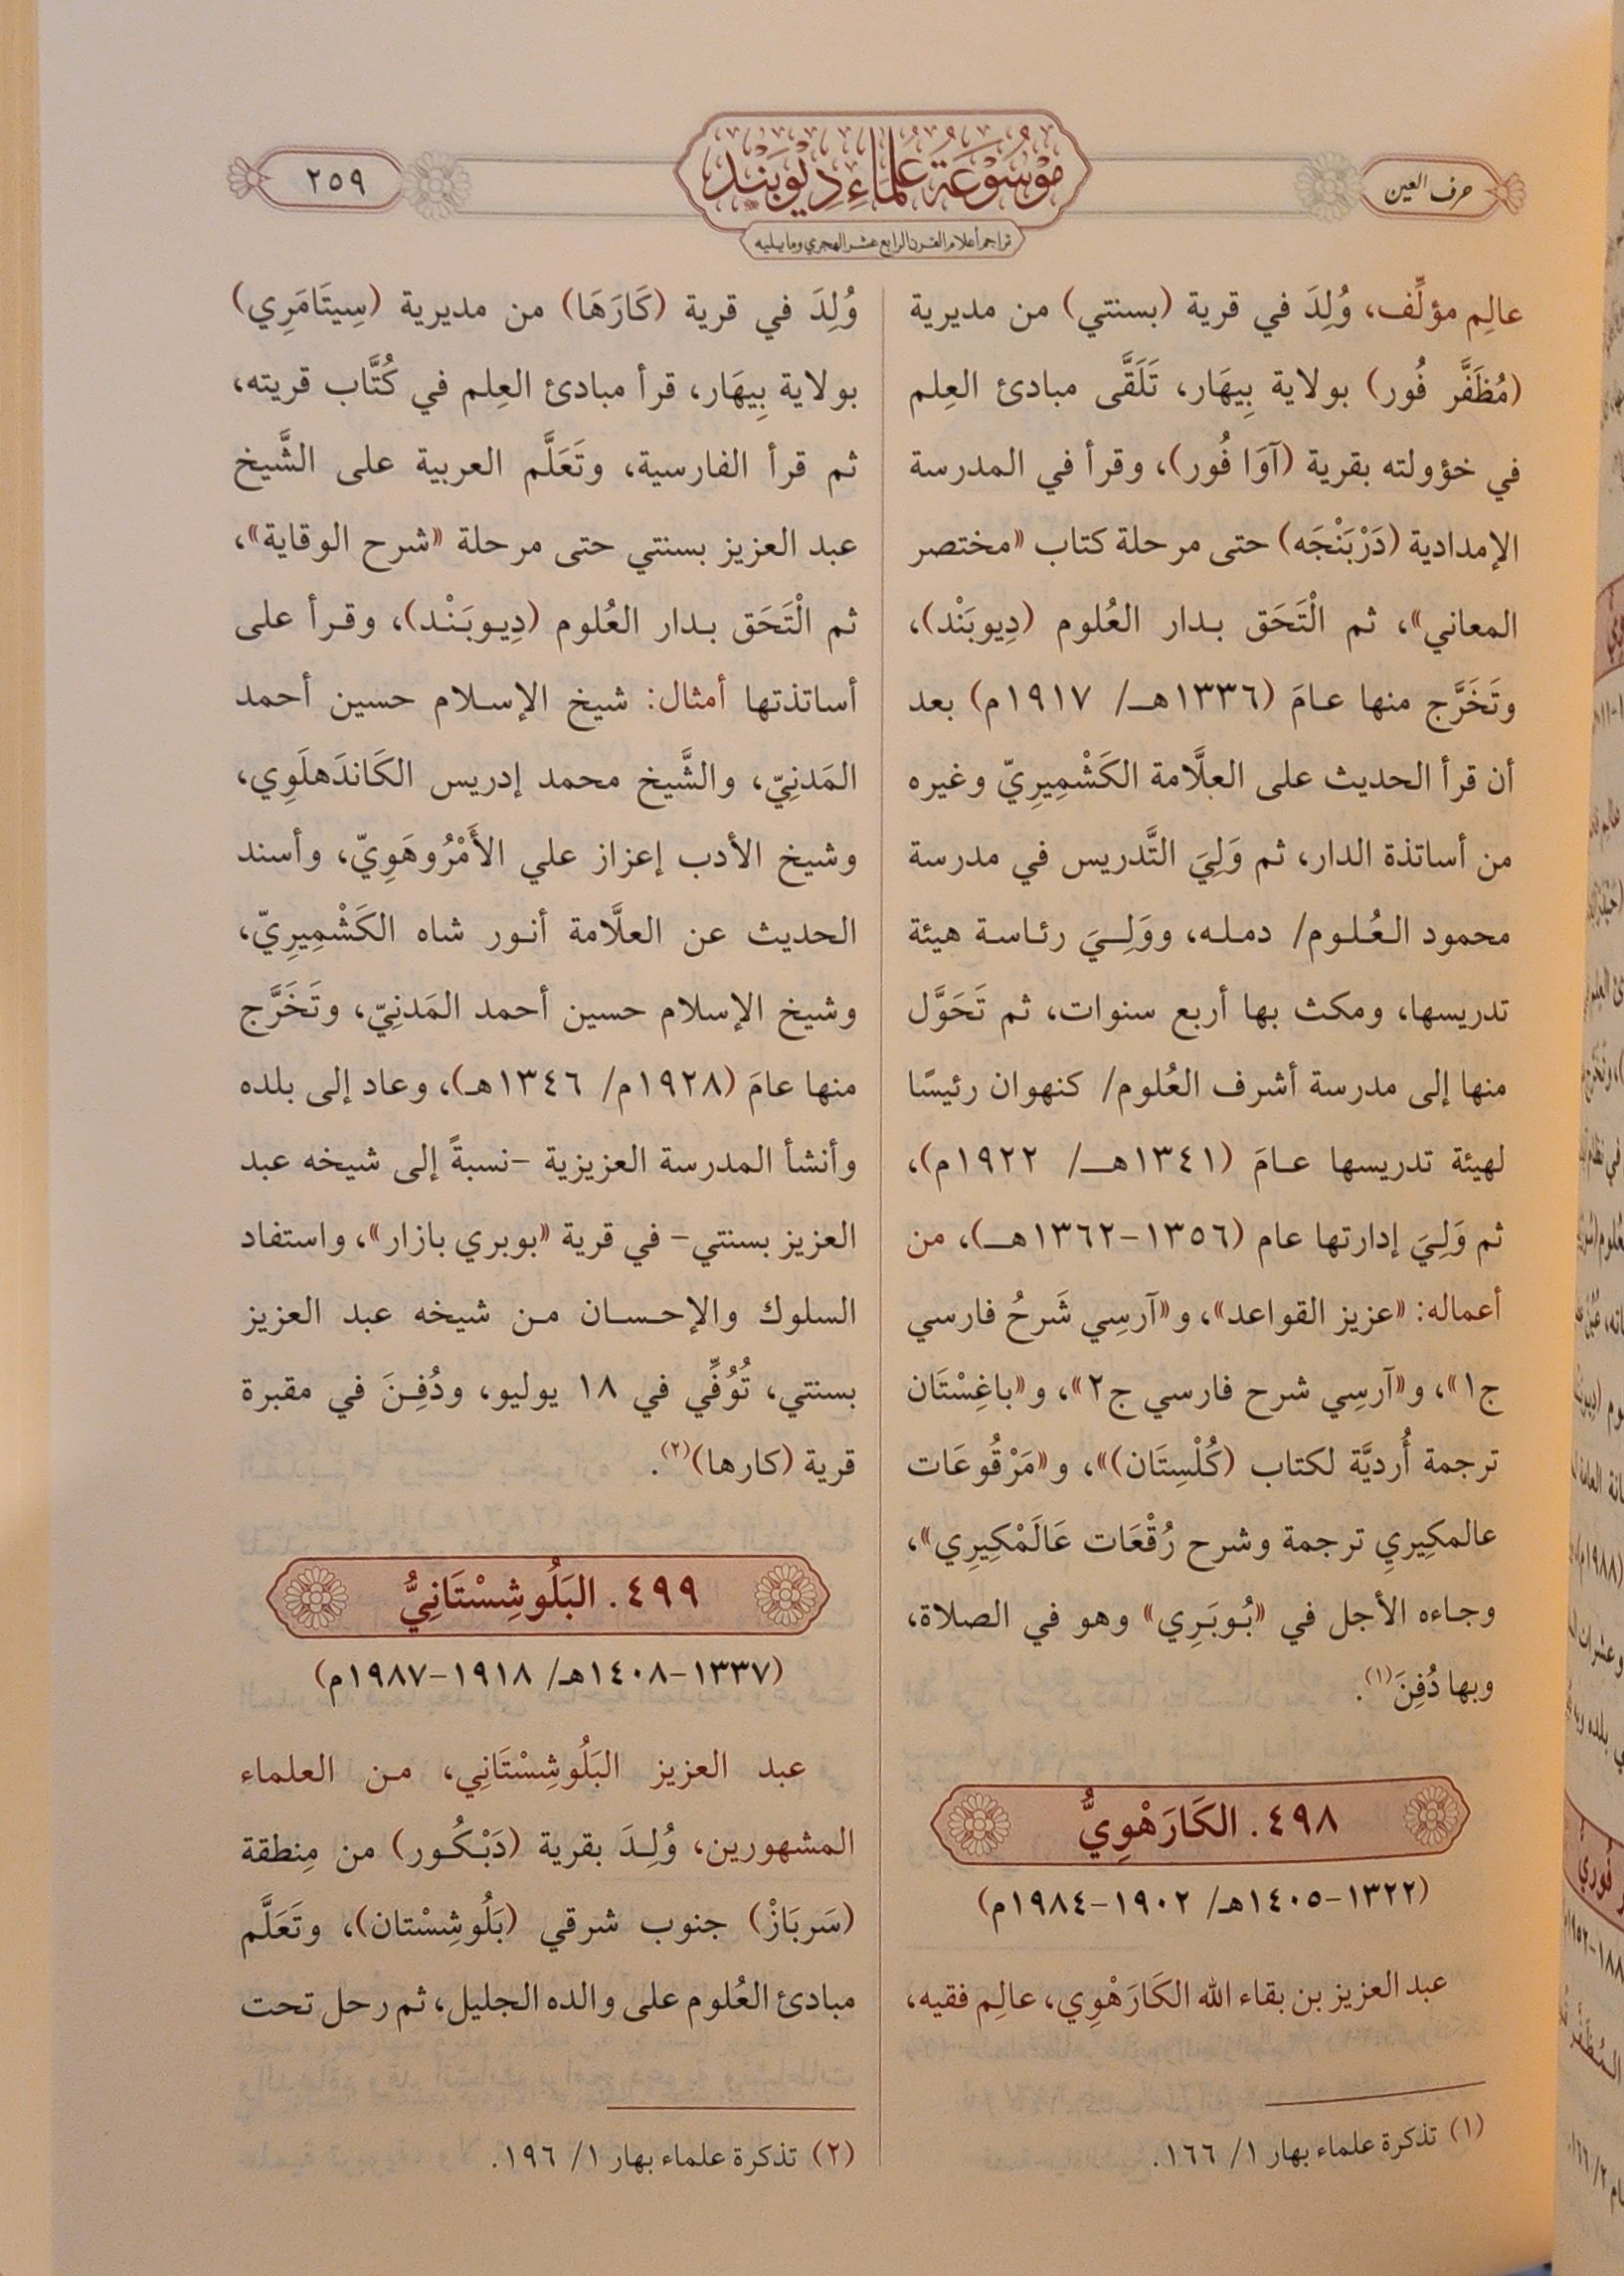 حرف العين
موسوعة علماء ديوبند
تراجم أعلام القرن الرابع عشر الهجري وما يليه
٢٥٩
عالِم مؤلِّف، وُلِدَ في قرية (بسنتي) من مديرية
(مُظَفَّر فُور) بولاية بِيهَار، تَلَقَّى مبادئ العِلم
في خؤولته بقرية (آوَا فُور)، وقرأ في المدرسة
الإمدادية (دَرْبَنْجَه) حتى مرحلة كتاب «مختصر
المعاني»، ثم الْتَحَق بدار العُلوم (دِيوبَنْد)،
وتَخَرَّج منها عامَ (١٣٣٦هـ/ ١٩١٧م) بعد
أن قرأ الحديث على العلَّامة الكَشْمِيرِيّ وغيره
من أساتذة الدار، ثم وَلِيَ التَّدريس في مدرسة
محمود العُلوم/ دمله، ووَلِيَ رئاسة هيئة
تدريسها، ومكث بها أربع سنوات، ثم تَحَوَّل
منها إلى مدرسة أشرف العُلوم/ كنهوان رئيسًا
لهيئة تدريسها عامَ (١٣٤١هـ/ ١٩٢٢م)،
ثم وَلِيَ إدارتها عام (١٣٥٦-١٣٦٢هـ)، من
أعماله: «عزيز القواعد»، و«آرسِي شَرحُ فارسي
ج١»، و«آرسِي شرح فارسي ج٢»، و«باغِسْتَان
ترجمة أُرديَّة لكتاب (كُلْسِتَان)»، و«مَرْقُوعَات
عالمكِيرِي ترجمة وشرح رُقْعَات عَالَمْكِيرِي»،
وجاءه الأجل في «بُوبَرِي» وهو في الصلاة،
وبها دُفِنَ(١).
٤٩٨. الكَارَهْوِيُّ
(١٣٢٢-١٤٠٥هـ/ ١٩٠٢-١٩٨٤م)
عبد العزيز بن بقاء الله الكَارَهْوِي، عالِم فقيه،
(١) تذكرة علماء بهار ١/ ١٦٦.
وُلِدَ في قرية (كَارَهَا) من مديرية (سِيتَامَرِي)
بولاية بِيهَار، قرأ مبادئ العِلم في كُتَّاب قريته،
ثم قرأ الفارسية، وتَعَلَّم العربية على الشَّيخ
عبد العزيز بسنتي حتى مرحلة «شرح الوقاية»،
ثم الْتَحَق بدار العُلوم (دِيوبَنْد)، وقرأ على
أساتذتها أمثال: شيخ الإسلام حسين أحمد
المَدنِيّ، والشَّيخ محمد إدريس الكَاندَهلَوِي،
وشيخ الأدب إعزاز علي الأَمْرُوهَوِيّ، وأسند
الحديث عن العلَّامة أنور شاه الكَشْمِيرِيّ،
وشيخ الإسلام حسين أحمد المَدنِيّ، وتَخَرَّج
منها عامَ (١٩٢٨م/ ١٣٤٦هـ)، وعاد إلى بلده
وأنشأ المدرسة العزيزية -نسبةً إلى شيخه عبد
العزيز بسنتي- في قرية «بوبري بازار»، واستفاد
السلوك والإحسان من شيخه عبد العزيز
بسنتي، تُوُفِّي في ١٨ يوليو، ودُفِنَ في مقبرة
قرية (كارها)(٢).
٤٩٩. البَلُوشِسْتَانِيُّ
(١٣٣٧-١٤٠٨هـ/ ١٩١٨-١٩٨٧م)
عبد العزيز البَلُوشِسْتَانِي، من العلماء
المشهورين، وُلِدَ بقرية (دَبْكُور) من مِنطقة
(سَربَازْ) جنوب شرقي (بَلُوشِسْتان)، وتَعَلَّم
مبادئ العُلوم على والده الجليل، ثم رحل تحت
(٢) تذكرة علماء بهار ١/ ١٩٦.